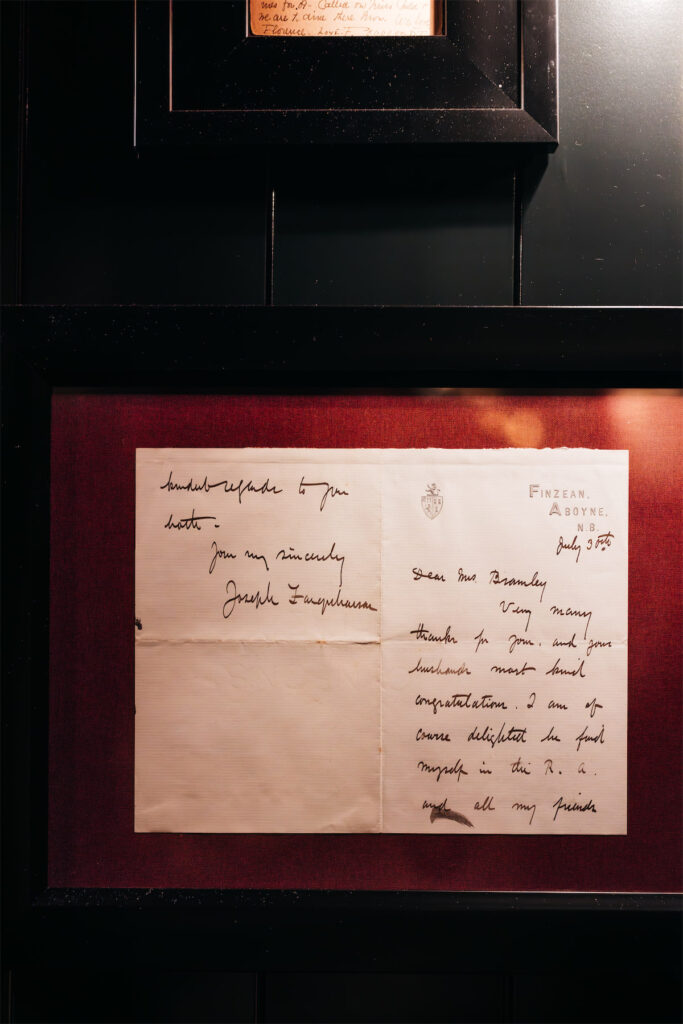 for A- Called on
we are dine there
Florence. Love
kindest regards to you
both -
Yours very sincerely
Joseph Farquharson
FINZEAN,
ABOYNE,
N.B.
July 30th
Dear Mrs Bramley
Very many
thanks for your, and your
husbands most kind
congratulations. I am of
course delighted to find
myself in the R. A.
and all my friends